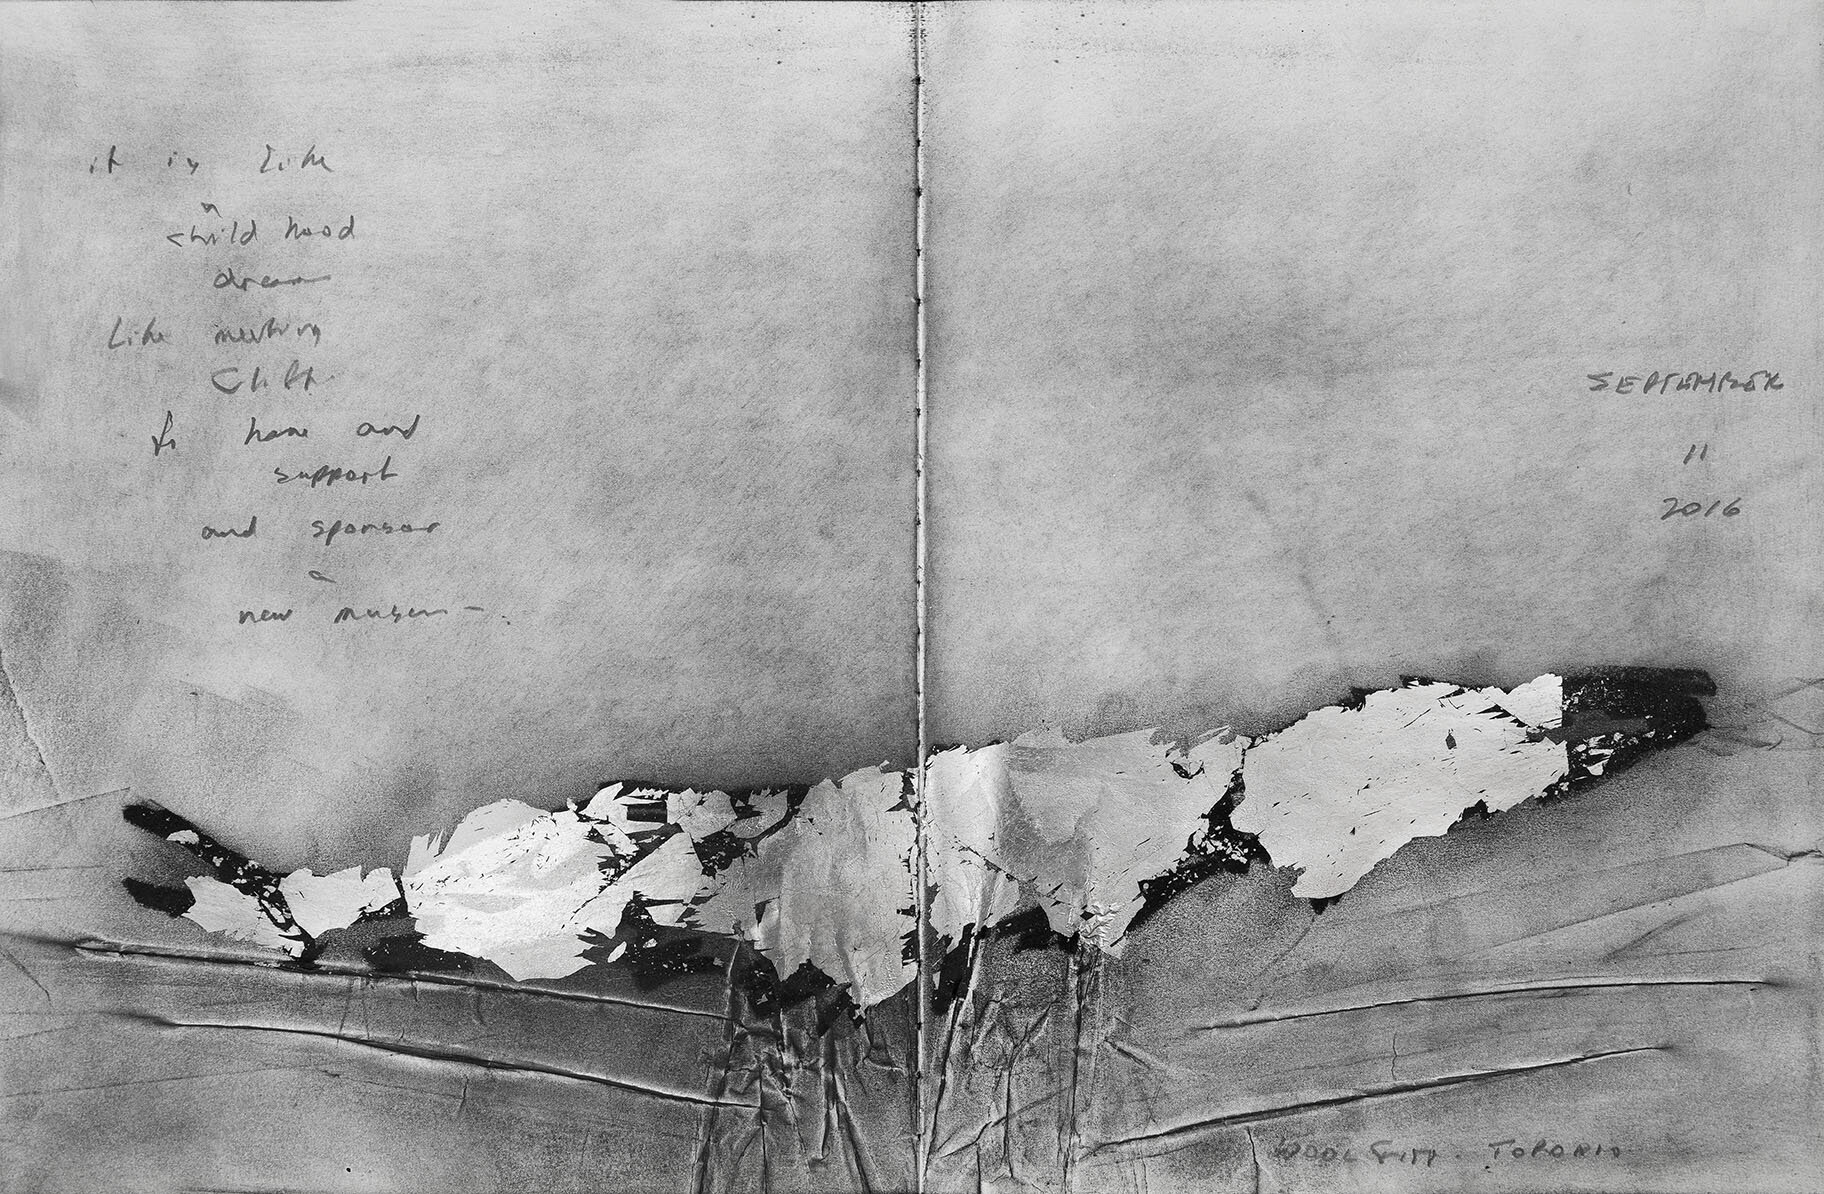 it is like
a
child hood
dream
Like meeting
to have and
support
and sponsor
a
new museum
SEPTEMBER
11
2016
TORONTO